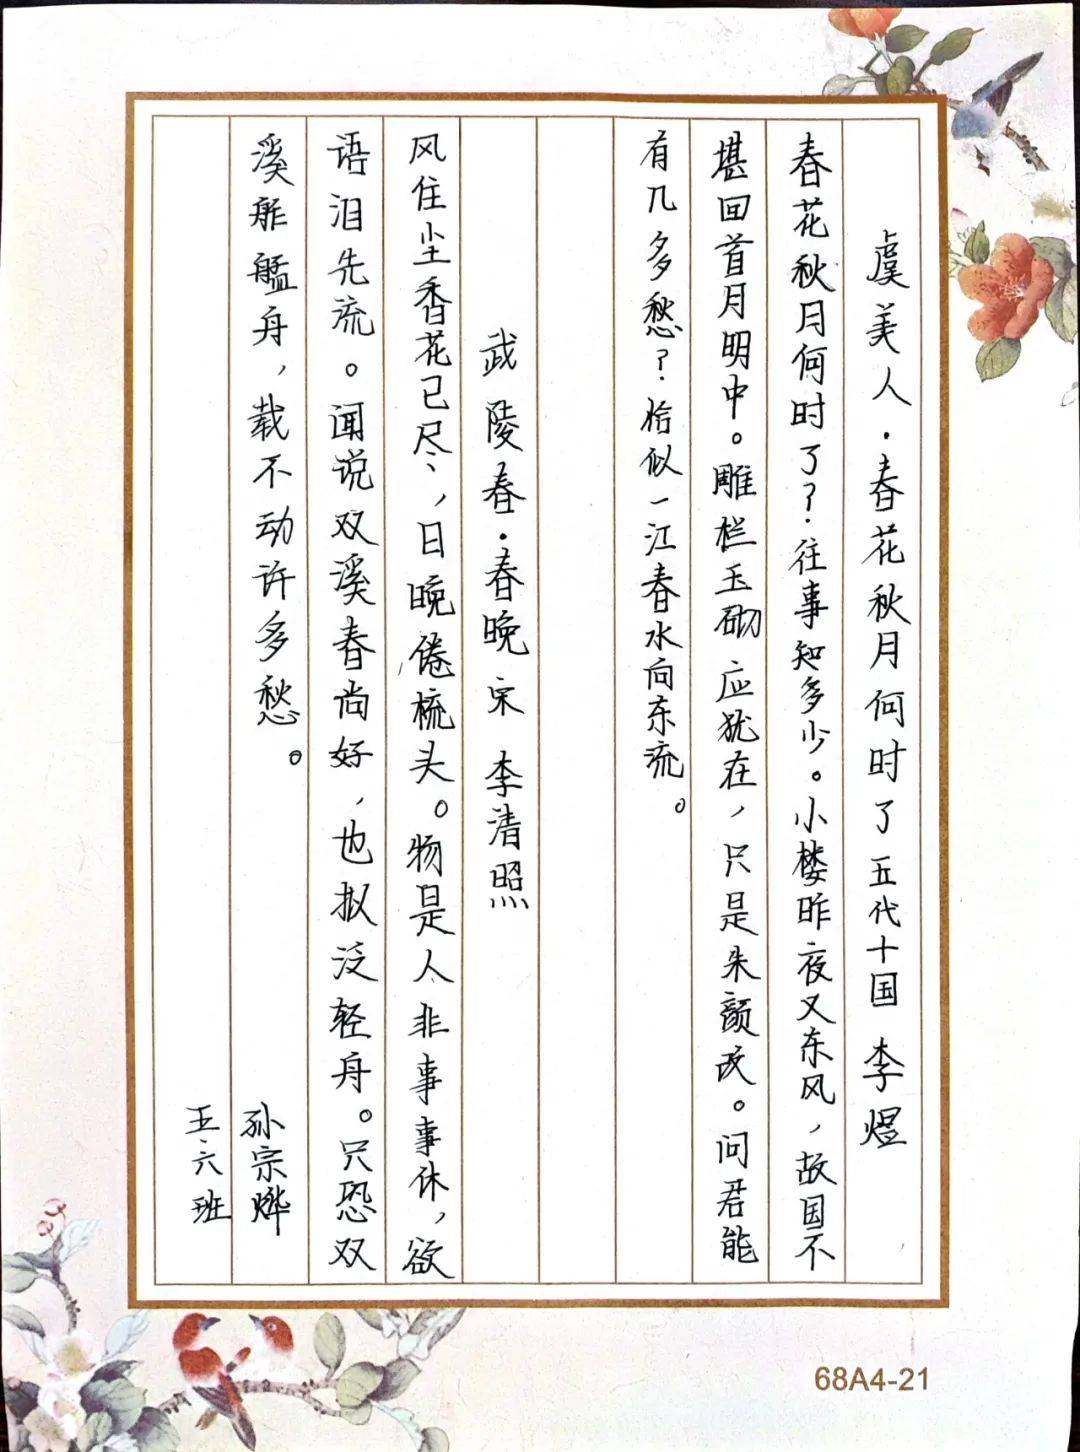 虞美人·春花秋月何时了 五代十国 李煜
春花秋月何时了?往事知多少。小楼昨夜又东风,故国不
堪回首月明中。雕栏玉砌应犹在,只是朱颜改。问君能
有几多愁?恰似一江春水向东流。
武陵春·春晚 宋 李清照
风住尘香花已尽,日晚倦梳头。物是人非事事休,欲
语泪先流。闻说双溪春尚好,也拟泛轻舟。只恐双
溪舴艋舟,载不动许多愁。
孙宗烨
五.六班
68A4-21